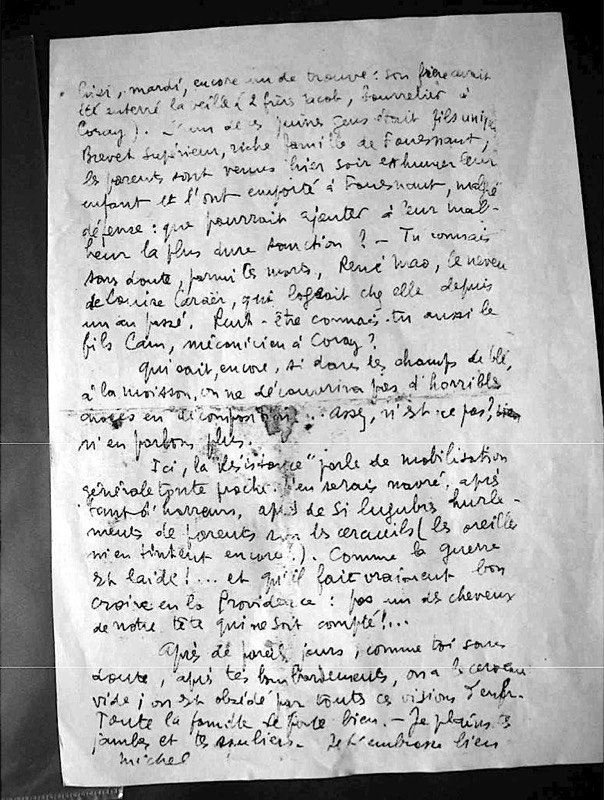 mardi, encore un de trouvé : son frère avait
été enterré la veille (2 frères Jacob, bourrelier à
Coray). L'un de ces jeunes gens était fils unique
Brevet Supérieur, riche famille de Fouesnant,
les parents sont venus hier soir exhumer leur
enfant et l'ont emporté à Fouesnant, malgré
défense : que pourrait ajouter à leur mal-
heur la plus dure sanction ? — Tu connais
sans doute, parmi les morts, René Mao, le neveu
de Louise Caraër, qui logeait chez elle depuis
un an passé. Peut-être connais-tu aussi le
fils Cam, mécanicien à Coray ?
Qui sait, encore, si dans les champs de blé,
à la moisson, on ne découvrira pas d'horribles
en décomposition... assez, n'est-ce pas ?
n'en parlons plus.
Ici, la "Résistance" parle de mobilisation
générale toute proche. J'en serais navré, après
tant d'horreurs, après de si lugubres hurle-
ments de parents sur les cercueils (les oreilles
m'en tintent encore !). Comme la guerre
est laide !... et qu'il fait vraiment bon
croire en la Providence : pas un des cheveux
de notre tête qui ne soit compté !...
Après de pareils jours, comme toi sans
doute, après tes bombardements, on a le cerveau
vide ; on est obsédé par toutes ces visions d'enfer.
Toute la famille se porte bien. — Je plains tes
jambes et tes souliers. Je t'embrasse bien
Michel